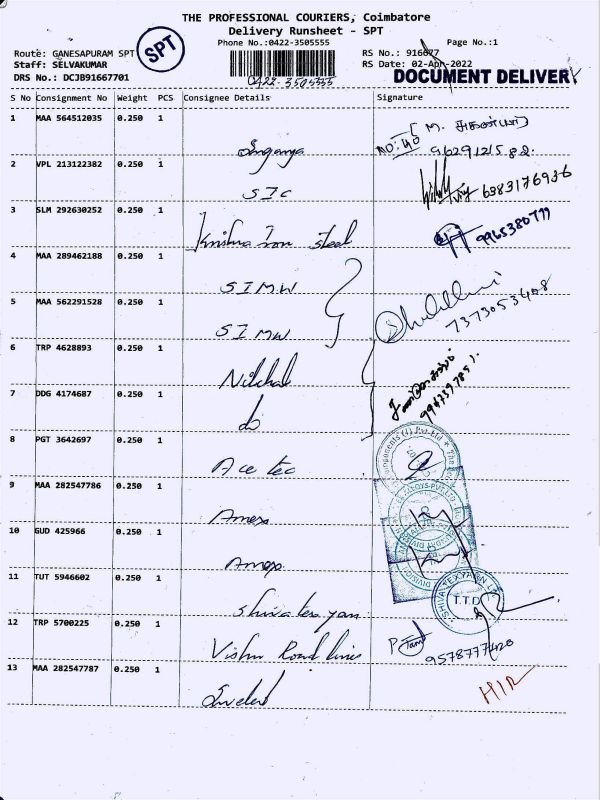 THE PROFESSIONAL COURIERS, Coimbatore
Delivery Runsheet - SPT
Phone No.:0422-3505555
Page No.:1
Route: GANESAPURAM SPT
SPT
RS No.: 916677
Staff: SELVAKUMAR
RS Date: 02-Apr-2022
DRS No.: DCJB91667701
0422-3505555
DOCUMENT DELIVERY
S No Consignment No Weight PCS Consignee Details Signature
1 MAA 564512035 0.250 1
NO: 40
2 VPL 213122382 0.250 1 SIC 6383176936
3 SLM 292630252 0.250 1 Krishna Iron steel
4 MAA 289462188 0.250 1 SIMW
5 MAA 562291528 0.250 1 SIMW 7373053408
6 TRP 4628893 0.250 1
7 DDG 4174687 0.250 1 do
8 PGT 3642697 0.250 1 Ace tec
9 MAA 282547786 0.250 1
10 GUD 425966 0.250 1
11 TUT 5946602 0.250 1 Shiva tex yarn
T.T.D
12 TRP 5700225 0.250 1 Vishnu Road lines
9578777420
13 MAA 282547787 0.250 1